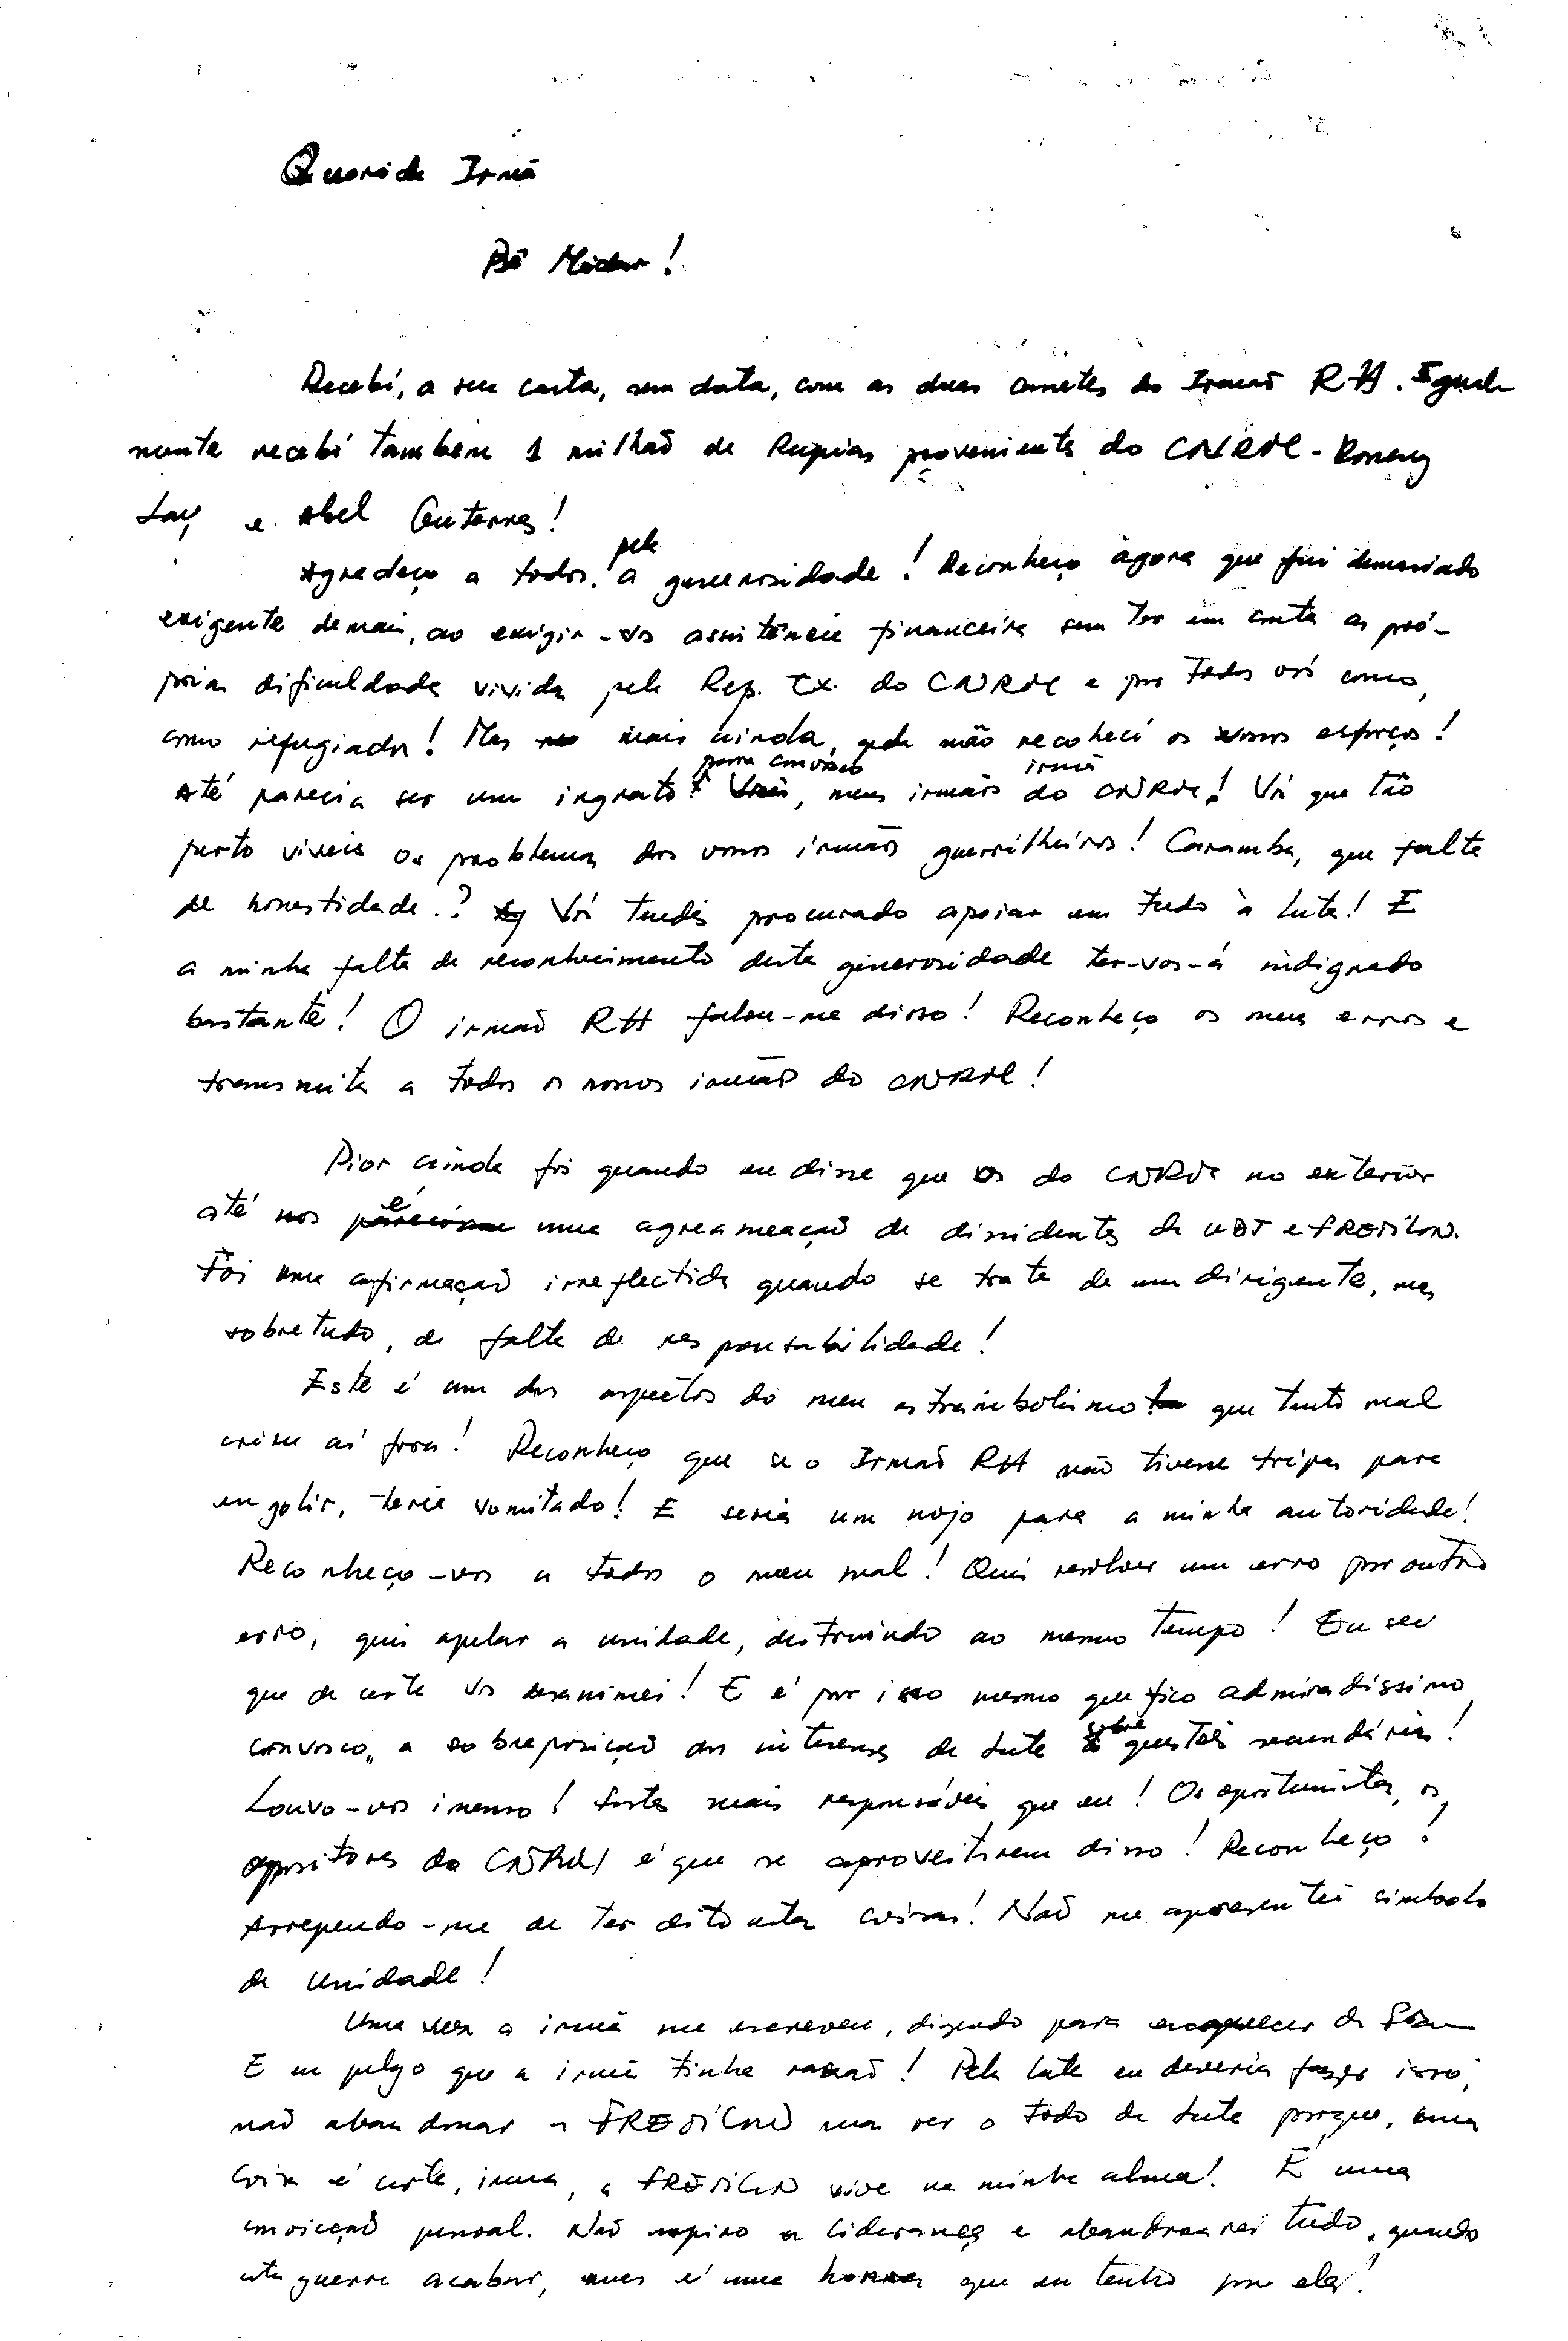 Querida Irmã
Bê Mídar!
Recebí, a sua carta, sem data, com as duas cassetes do Irmaõ RH. Iguale
mente recebí também 1 milhaõ de Rupias proveniente do CNRM -
Lay e Abel Guterres!
Agradeço a todos, pela a generosidade! Reconheço agora que fui demasiado
exigente demais, ao exigir-vos assistência financeira sem ter em conta as pró-
prias dificuldades vividas pela Rep. Ex. do CNRM e por todos vós como,
como refugiados! Mas mais ainda, não reconhecí os vossos esforços!
Até parecia ser um ingrato para convosco, meus irmãos irmã do CNRM! Vós que tão
perto viveis os problemas dos vossos irmãos guerrilheiros! Caramba, que falta
de honestidade.? Vós tendes procurado apoiar em tudo à Luta! E
a minha falta de reconhecimento desta generosidade ter-vos-á indignado
bastante! O irmaõ RH falou-me disso! Reconheço os meus erros e
transmita a todos os nossos irmãos do CNRM!
Pior ainda foi quando eu disse que os do CNRM no exterior
até nos é uma agreameaçaõ de dissidentes da UDT e FRETILIN.
Foi uma afirmaçaõ irreflectida quando se trata de um dirigente, mas
sobretudo, de falta de responsabilidade!
Este é um dos aspectos do meu estrambolismo que tanto mal
criou aí fora! Reconheço que se o Irmaõ RH naõ tivesse tripas para
engolir, teria vomitado! E seria um nojo para a minha autoridade!
Reconheço-vos a todos o meu mal! Quis resolver um erro por outro
erro, quis apelar a unidade, destruindo ao mesmo tempo! Eu sei
que de certo vos desanimei! E é por isso mesmo que fico admiradíssimo
convosco, a sobreposiçaõ dos interesses da Luta sobre questões secundárias!
Louvo-vos imenso! Fostes mais responsáveis que eu! Os oportunistas, os
oppositores do CNRM é que se aproveitaram disso! Reconheço!
Arrependo-me de ter dito estas coisas! Naõ me apresentei símbolo
de unidade!
Uma vez a irmã me escreveu, dizendo para esquecer da
E eu julgo que a irmã tinha razaõ! Pela luta eu deveria fazer isso,
naõ abandonar a FRETILIN mas ver o todo da Luta porque, uma
coisa é certa, irmã, a FRETILIN vive na minha alma! É uma
convicçaõ pessoal. Naõ aspiro a liderança e abandonarei tudo, quando
esta guerra acabar, mas é uma honra que eu tenho por ela!